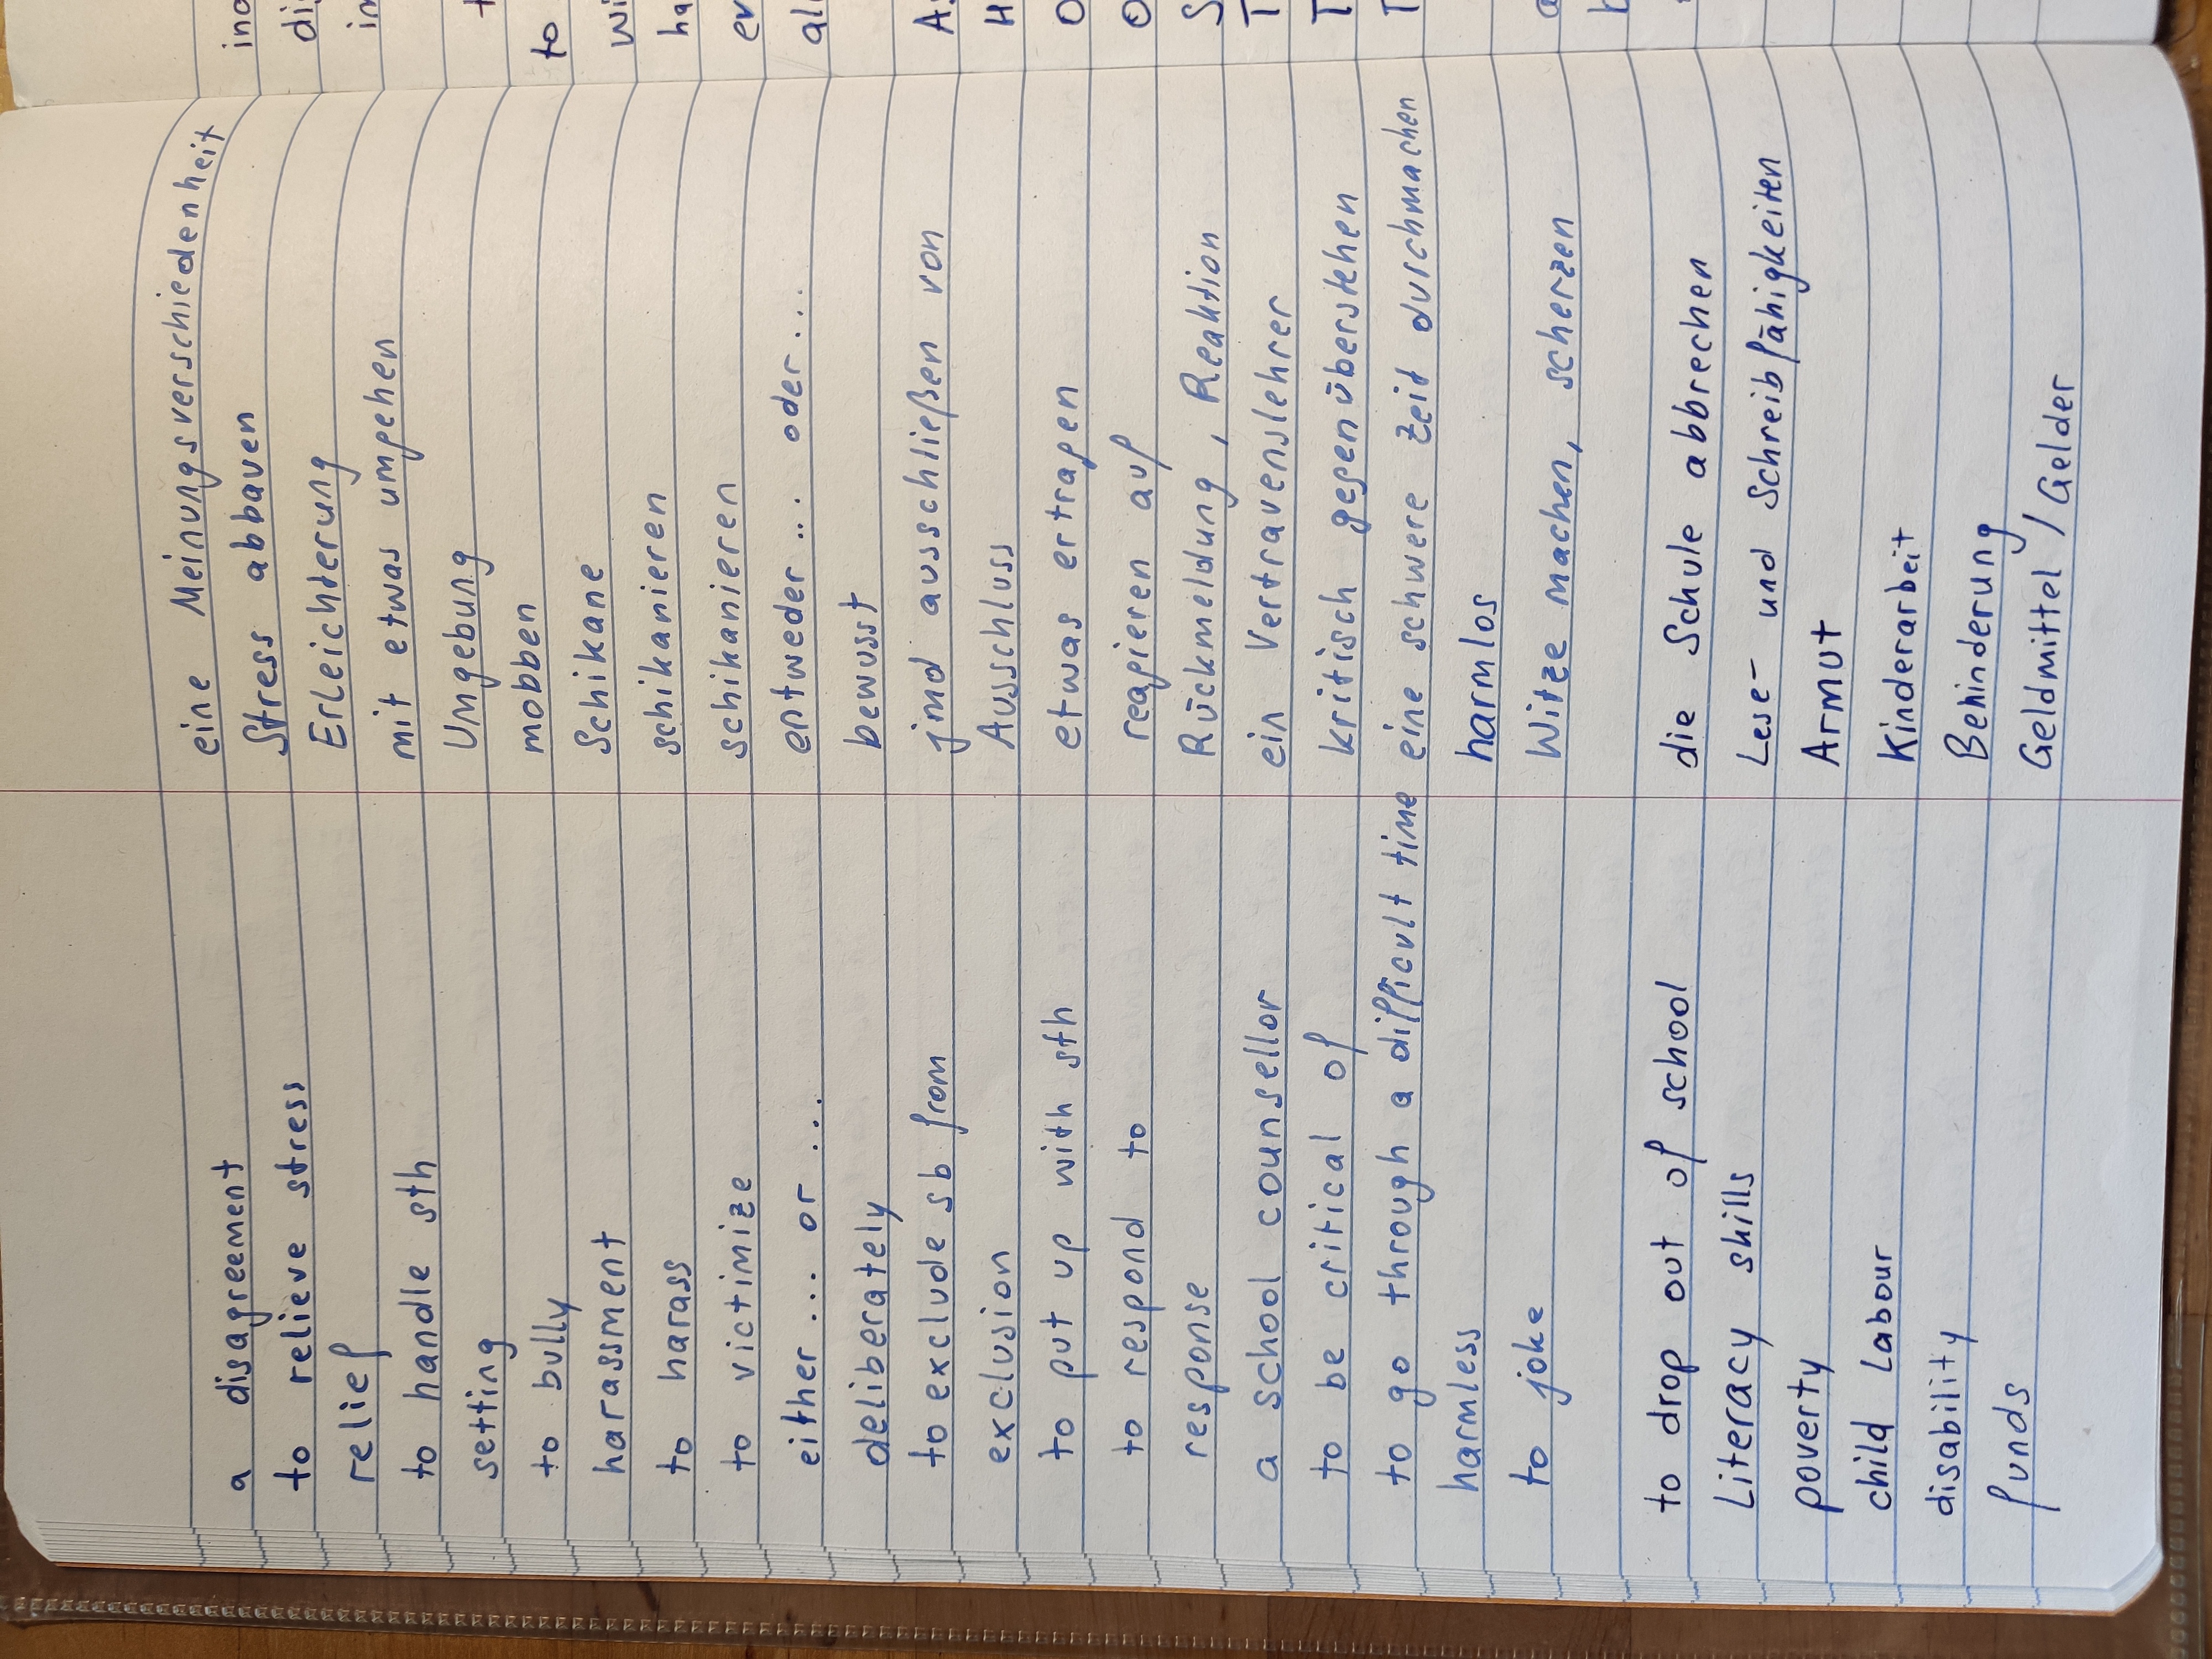 a disagreement eine Meinungsverschiedenheit
to relieve stress Stress abbauen
relief Erleichterung
to handle sth mit etwas umgehen
setting Umgebung
to bully mobben
harassment Schikane
to harass schikanieren
to victimize schikanieren
either ... or ... entweder ... oder ...
deliberately bewusst
to exclude sb from jmd ausschließen von
exclusion Ausschluss
to put up with sth etwas ertragen
to respond to reagieren auf
response Rückmeldung, Reaktion
a school counsellor ein Vertrauenslehrer
to be critical of kritisch gegenüberstehen
to go through a difficult time eine schwere Zeit durchmachen
harmless harmlos
to joke Witze machen, scherzen
to drop out of school die Schule abbrechen
Literacy skills Lese- und Schreibfähigkeiten
poverty Armut
child Labour Kinderarbeit
disability Behinderung
funds Geldmittel / Gelder
to